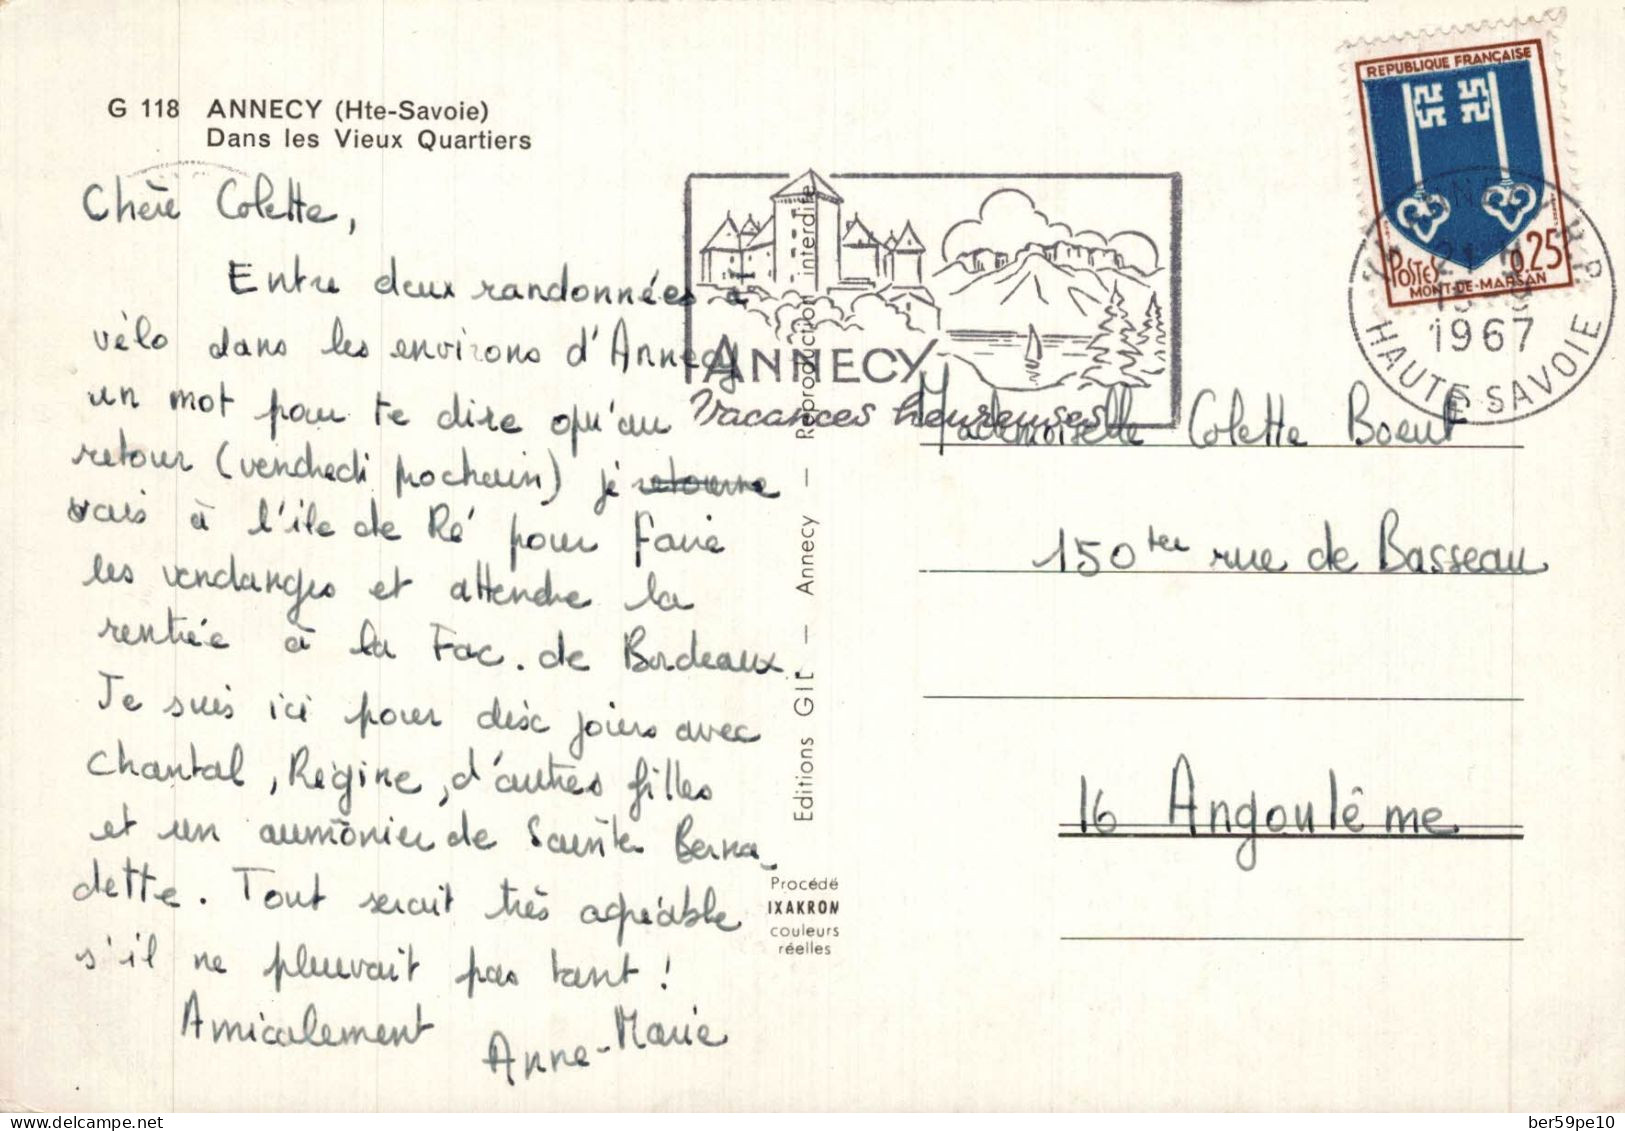 G 118 ANNECY (Hte-Savoie)
Dans les Vieux Quartiers
Chère Colette,
Entre deux randonnées à
vélo dans les environs d'Annecy
un mot pour te dire qu'au
retour (vendredi prochain) je retourne
vais à l'île de Ré pour faire
les vendanges et attendre la
rentrée à la Fac. de Bordeaux.
Je suis ici pour dix jours avec
Chantal, Régine, d'autres filles
et un aumônier de Sainte Berna-
dette. Tout serait très agréable
s'il ne pleuvait pas tant !
Amicalement
Anne-Marie
Editions GIL — Annecy — Reproduction interdite
Procédé
IXAKROM
couleurs
réelles
ANNECY
Vacances heureuses
REPUBLIQUE FRANÇAISE
POSTES 0,25
MONT-DE-MARSAN
1967
HAUTE SAVOIE
Mademoiselle Colette Boeuf
150 ter rue de Basseau
16 Angoulême
delcampe.net
ber59pe10